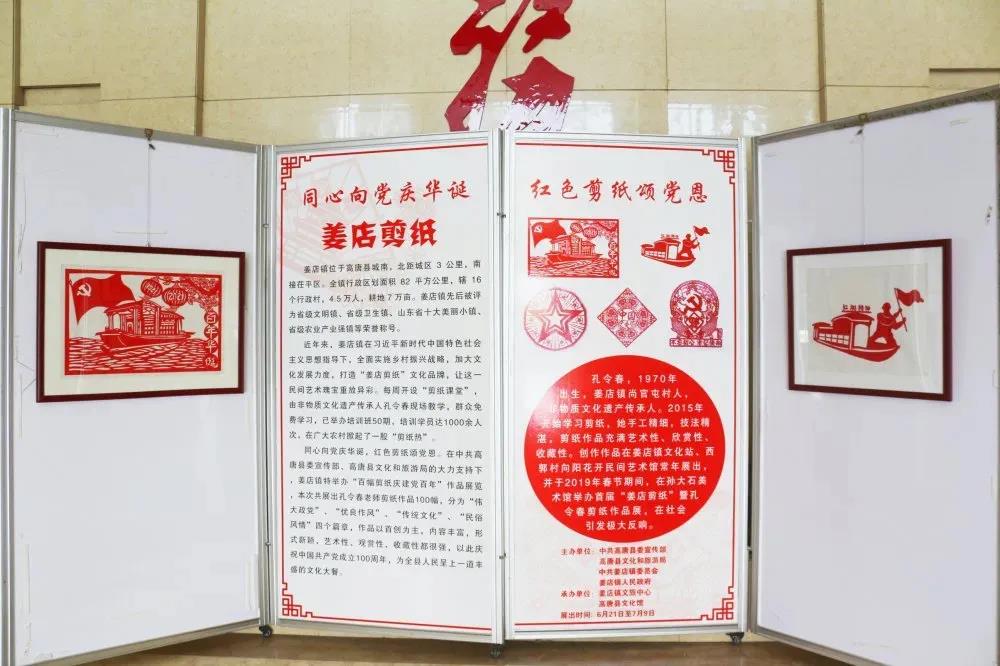 同心向党庆华诞
姜店剪纸
姜店镇位于高唐县城南，北距城区 3 公里，南
接在平区。全镇行政区划面积 82 平方公里，辖 16
个行政村，4.5万人，耕地7万亩。姜店镇先后被评
为省级文明镇、省级卫生镇、山东省十大美丽小镇、
省级农业产业强镇等荣誉称号。
近年来，姜店镇在习近平新时代中国特色社会
主义思想指导下，全面实施乡村振兴战略，加大文
化发展力度，打造“姜店剪纸”文化品牌，让这一
民间艺术瑰宝重放异彩。每周开设“剪纸课堂”，
由非物质文化遗产传承人孔令春现场教学，群众免
费学习，已举办培训班50期，培训学员达1000余人
次，在广大农村掀起了一股“剪纸热”。
同心向党庆华诞，红色剪纸颂党恩。在中共高
唐县委宣传部、高唐县文化和旅游局的大力支持下
，姜店镇特举办“百幅剪纸庆建党百年”作品展览
，本次共展出孔令春老师剪纸作品100幅，分为“伟
大政党”、“优良作风”、“传统文化”、“民俗
风情”四个篇章，作品以首创为主，内容丰富，形
式新颖，艺术性、观赏性、收藏性都很强，以此庆
祝中国共产党成立100周年，为全县人民呈上一道丰
盛的文化大餐。
红色剪纸颂党恩
中国
孔令春，1970年
出生，姜店镇尚官屯村人，
非物质文化遗产传承人。2015年
开始学习剪纸，她手工精细，技法精
湛，剪纸作品充满艺术性、欣赏性、
收藏性。创作作品在姜店镇文化站、西
郭村向阳花开民间艺术馆常年展出，
并于2019年春节期间，在孙大石美
术馆举办首届“姜店剪纸”暨孔
令春剪纸作品展，在社会
引发极大反响。
主办单位：中共高唐县委宣传部
高唐县文化和旅游局
中共姜店镇委员会
姜店镇人民政府
承办单位：姜店镇文旅中心
高唐县文化馆
展出时间：6月21日至7月9日